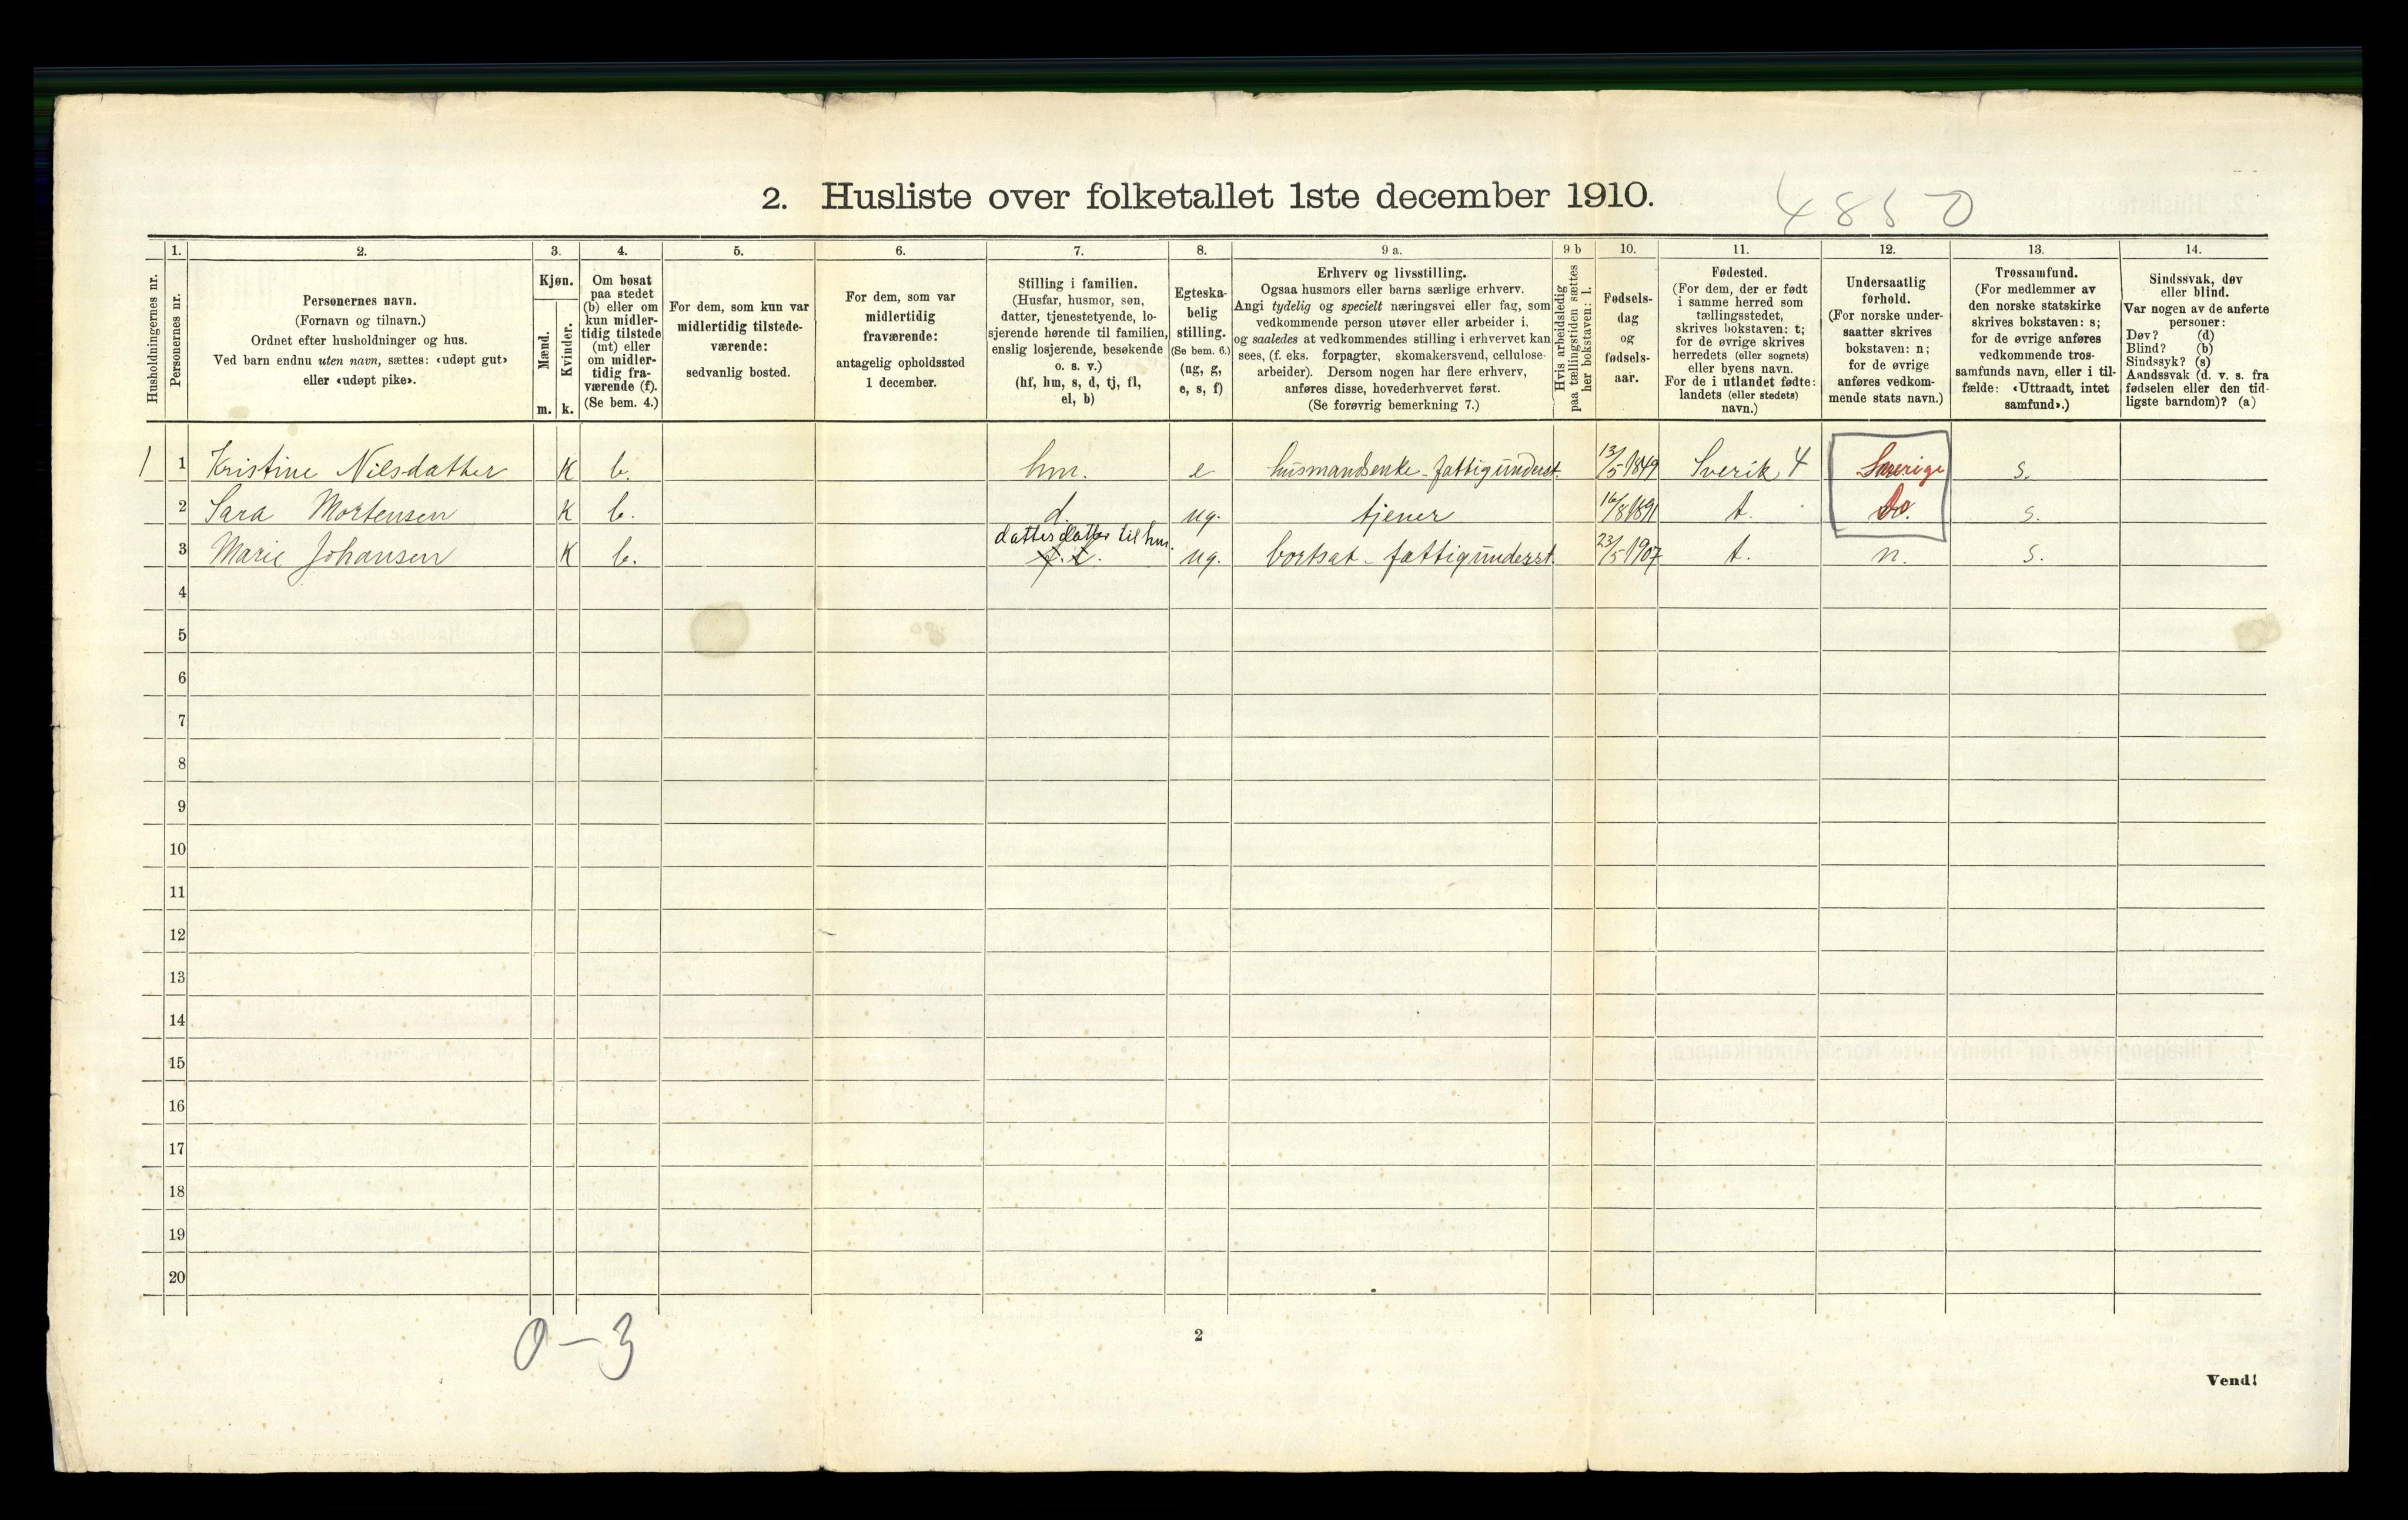 2. Husliste over folketallet 1ste december 1910.
4850
1. 2. 3. 4. 5. 6. 7. 8. 9 a. 9 b 10. 11. 12. 13. 14.
Husholdningernes nr.
Personernes nr.
Personernes navn.
(Fornavn og tilnavn.)
Ordnet efter husholdninger og hus.
Ved barn endnu uten navn, sættes: «udøpt gut»
eller «udøpt pike».
Kjøn.
Mænd.
Kvinder.
m. k.
Om bosat
paa stedet
(b) eller om
kun midler-
tidig tilstede
(mt) eller
om midler-
tidig fra-
værende (f).
(Se bem. 4.)
For dem, som kun var
midlertidig tilstede-
værende:
sedvanlig bosted.
For dem, som var
midlertidig
fraværende:
antagelig opholdssted
1 december.
Stilling i familien.
(Husfar, husmor, søn,
datter, tjenestetyende, lo-
sjerende hørende til familien,
enslig losjerende, besøkende
o. s. v.)
(hf, hm, s, d, tj, fl,
el, b)
Egteska-
belig
stilling.
(Se bem. 6.)
(ug, g,
e, s, f)
Erhverv og livsstilling.
Ogsaa husmors eller barns særlige erhverv.
Angi tydelig og specielt næringsvei eller fag, som
vedkommende person utøver eller arbeider i,
og saaledes at vedkommendes stilling i erhvervet kan
sees, (f. eks. forpagter, skomakersvend, cellulose-
arbeider). Dersom nogen har flere erhverv,
anføres disse, hovederhvervet først.
(Se forøvrig bemerkning 7.)
Hvis arbeidsledig
paa tællingstiden sættes
her bokstaven: l.
Fødsels-
dag
og
fødsels-
aar.
Fødested.
(For dem, der er født
i samme herred som
tællingsstedet,
skrives bokstaven: t;
for de øvrige skrives
herredets (eller sognets)
eller byens navn.
For de i utlandet fødte:
landets (eller stedets)
navn.)
Undersaatlig
forhold.
(For norske under-
saatter skrives
bokstaven: n;
for de øvrige
anføres vedkom-
mende stats navn.)
Trossamfund.
(For medlemmer av
den norske statskirke
skrives bokstaven: s;
for de øvrige anføres
vedkommende tros-
samfunds navn, eller i til-
fælde: «Uttraadt, intet
samfund».)
Sindssvak, døv
eller blind.
Var nogen av de anførte
personer:
Døv? (d)
Blind? (b)
Sindssyk? (s)
Aandssvak (d. v. s. fra
fødselen eller den tid-
ligste barndom)? (a)
1 1 Kristine Nilsdatter K b. hm. e husmandsenke - fattigunderst. 13/5 1849 Sverik 4 Sverige s.
2 Sara Mortensen K b. d. ug. tjener 16/8 1891 t. Do. s.
datterdatter til hm.
3 Marie Johansen K b. ug. bortsat - fattigunderst. 23/5 1907 t. n. s.
4
5
6
7
8
9
10
11
12
13
14
15
16
17
18
19
20
0-3
2
Vend!